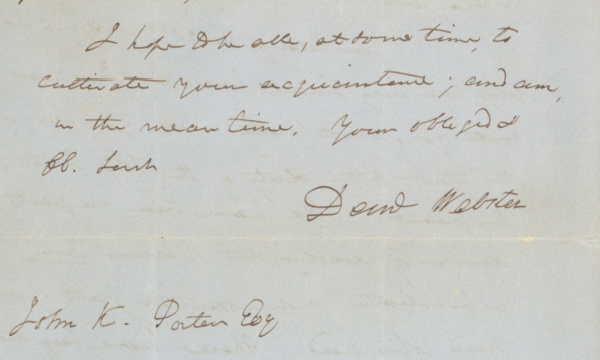 I hope to be able, at some time, to
cultivate your acquaintance; and am,
in the mean time, Your obliged &
Ob. Servt
Danl Webster
John K. Porter Esq